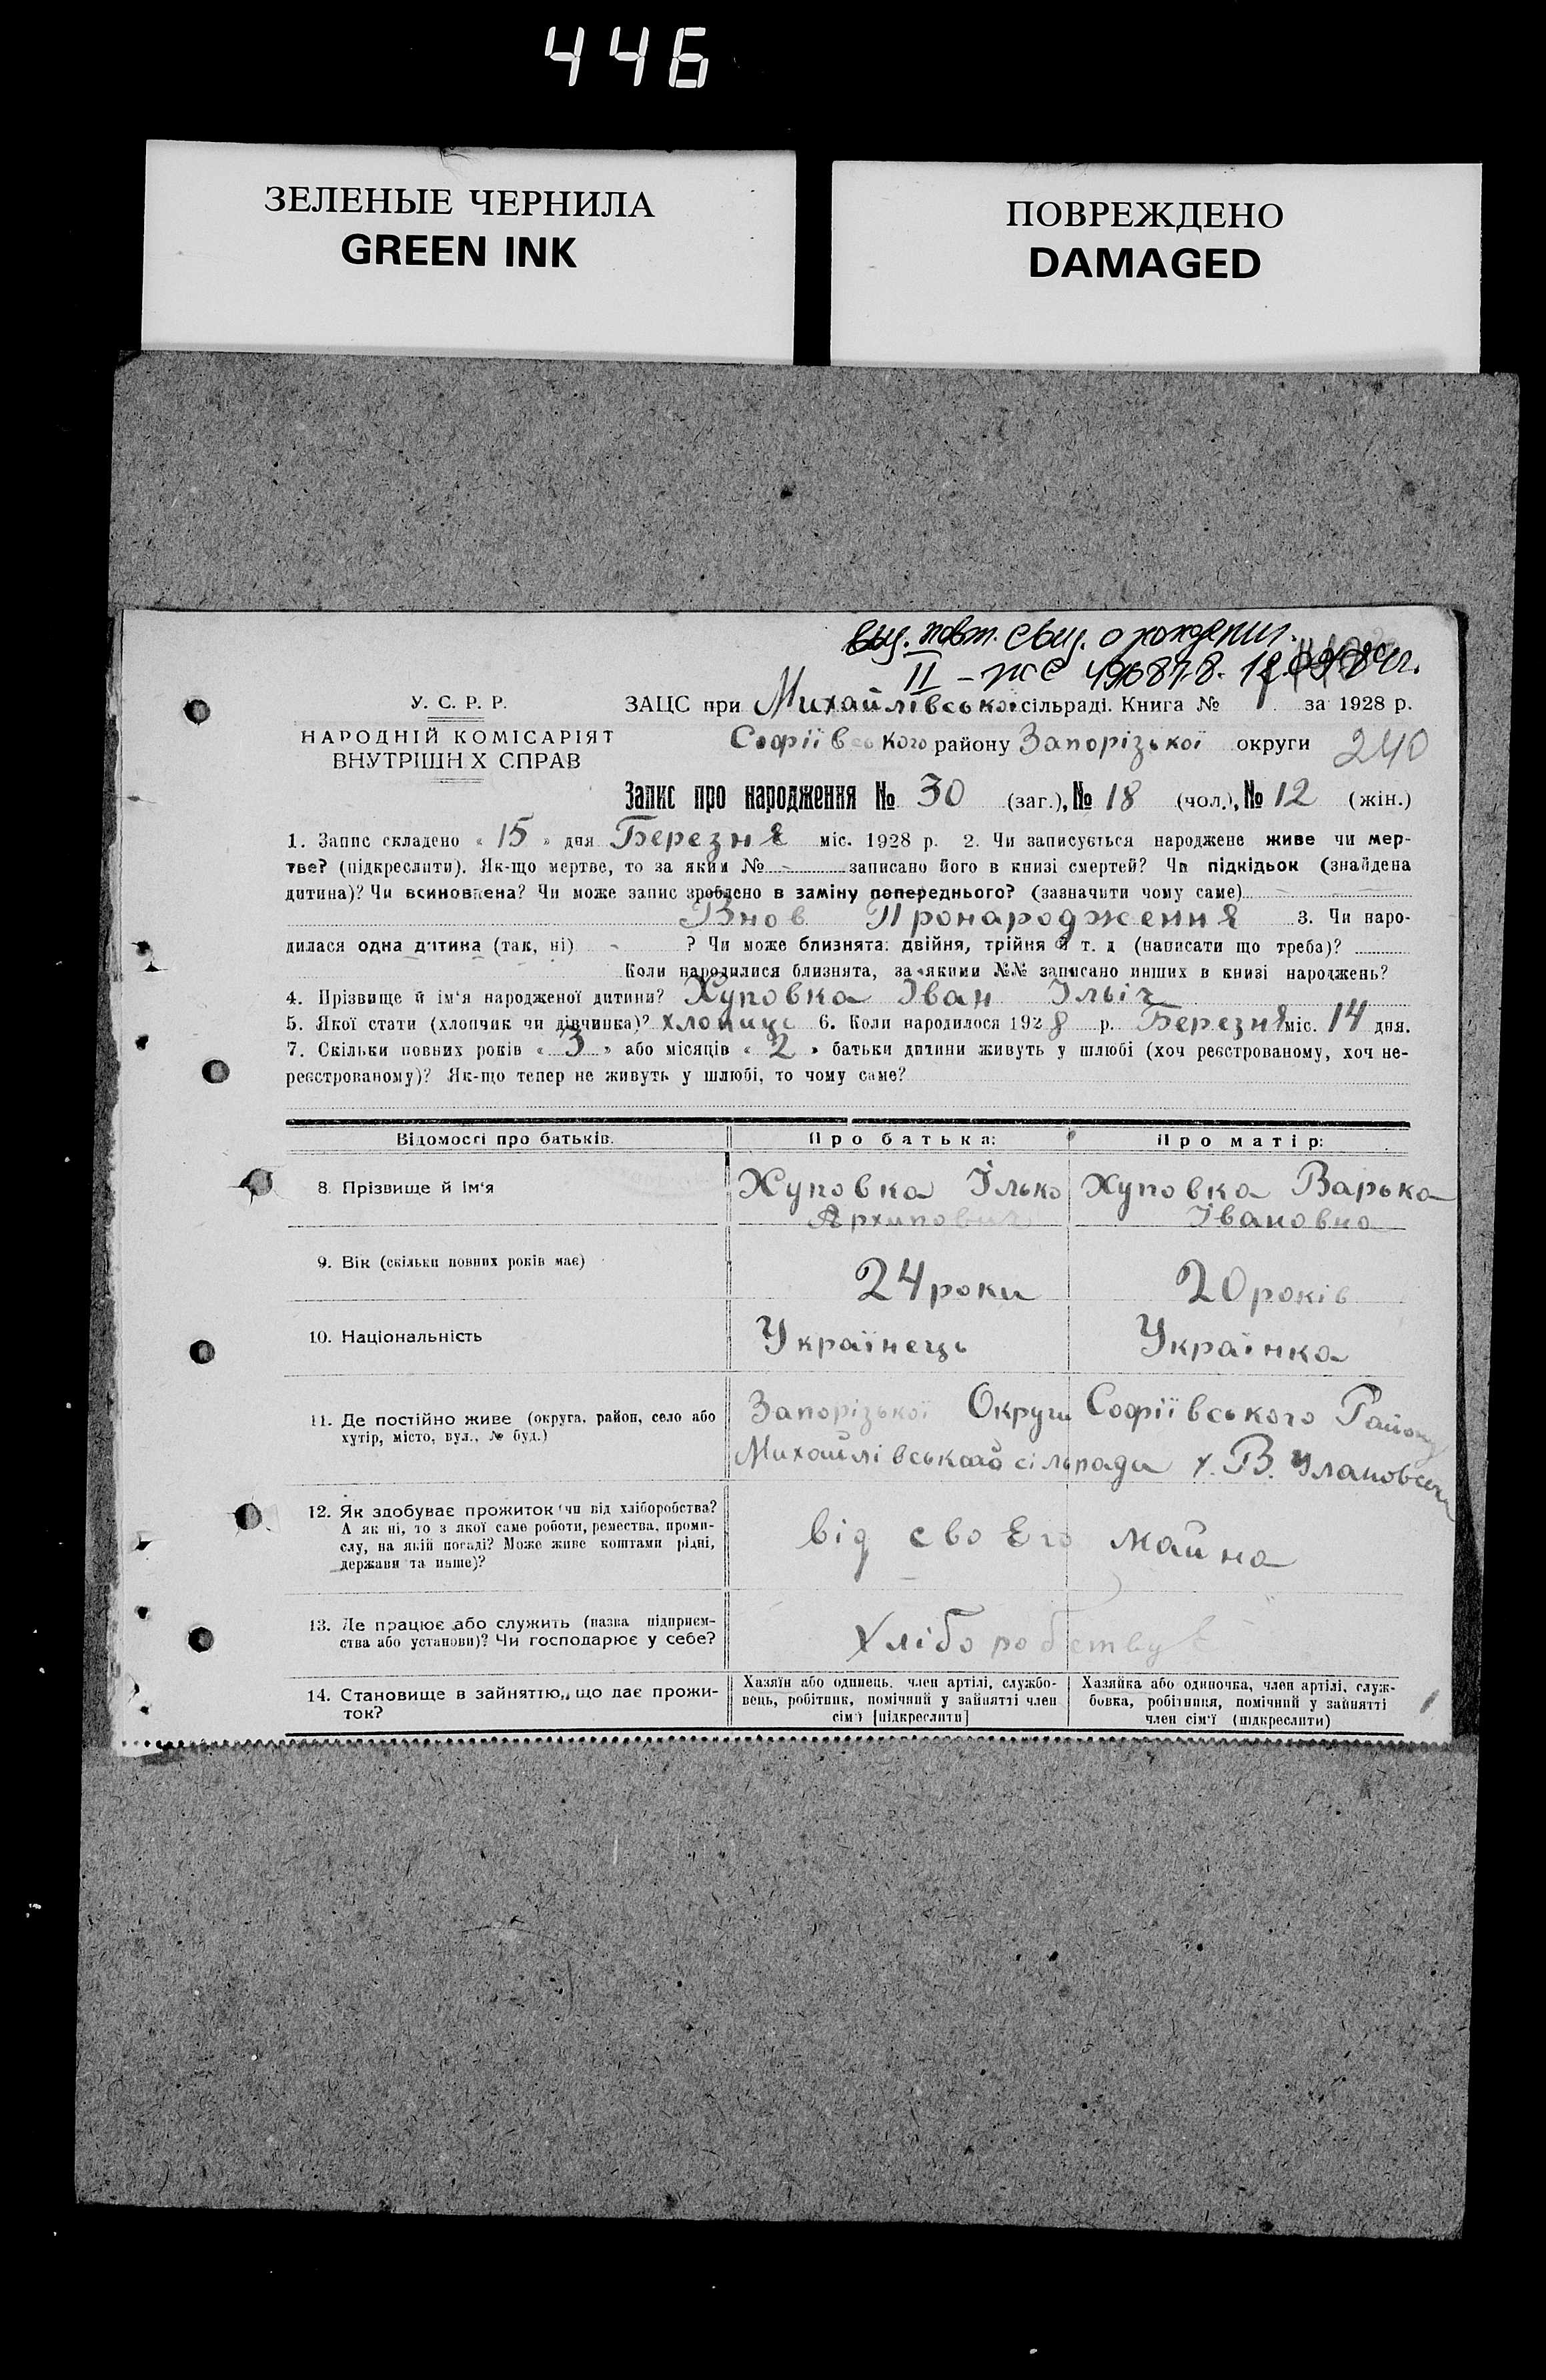 446
ЗЕЛЕНЫЕ ЧЕРНИЛА
GREEN INK
ПОВРЕЖДЕНО
DAMAGED
выд. повт. свид. о рождении.
II – ЖС
У. С. Р. Р.
НАРОДНІЙ КОМІСАРІЯТ
ВНУТРІШН Х СПРАВ
ЗАЦС при Михайлівськоі сільраді. Книга № за 1928 р.
Софіївського району Запорізької округи 240
Запис про народження № 30 (заг.), № 18 (чол.), № 12 (жін.)
1. Запис складено « 15 » дня Березня міс. 1928 р. 2. Чи записується народжене живе чи мер-
тве? (підкреслити). Як-що мертве, то за яким № записано його в книзі смертей? Чи підкідьок (знайдена
дитина)? Чи всиновлена? Чи може запис зроблено в заміну попереднього? (зазначити чому саме)
Внов Пронародження 3. Чи наро-
дилася одна дитина (так, ні) - ? Чи може близнята: двійня, трійня й т. д (написати що треба)?
Коли народилися близнята, за якими №№ записано инших в книзі народжень?
4. Прізвище й ім'я народженої дитини? Хуповка Іван Ільіч
5. Якої стати (хлопчик чи дівчинка)? хлопиць 6. Коли народилося 1928 р. Березня міс. 14 дня.
7. Скільки повних років « 3 » або місяців « 2 » батьки дитини живуть у шлюбі (хоч реєстрованому, хоч не-
реєстрованому)? Як-що тепер не живуть у шлюбі, то чому саме?
Відомості про батьків. Про батька: Про матір:
8. Прізвище й ім'я Хуповка Ілько Хуповка Варька
Архипович Івановна
9. Вік (скільки повних років має) 24 роки 20 років
10. Національність Українець Українка
11. Де постійно живе (округа, район, село або
хутір, місто, вул., № буд.)
Запорізької Округи Софіївського Району
Михайлівської сільради х. В.
12. Як здобуває прожиток чи від хліборобства?
А як ні, то з якої саме роботи, ремества, проми-
слу, на якій посаді? Може живе коштами рідні,
держави та инше)?
від своЕго майна
13. Де працює або служить (назва підприєм-
ства або установи)? Чи господарює у себе?
Хлібо робству
14. Становище в зайняттю, що дає прожи-
ток?
Хазяїн або одинець, член артілі, службо-
вець, робітник, помічний у зайнятті член
сім'ї [підкреслити]
Хазяйка або одиночка, член артілі, служ-
бовка, робітниця, помічний у зайнятті
член сім'ї (підкреслити)